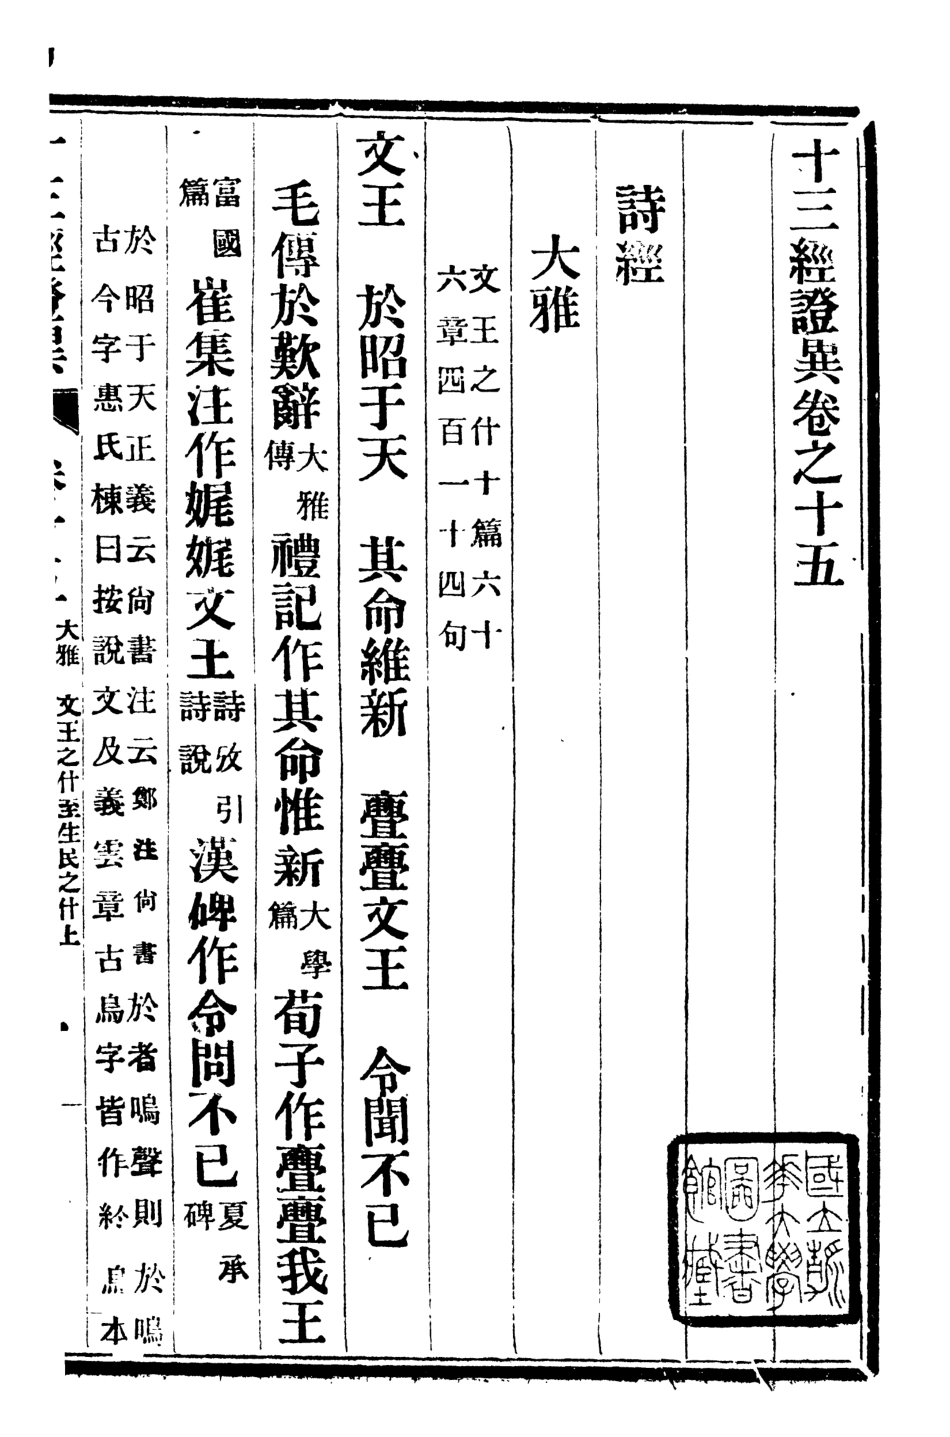 十三經證異卷之十五
詩經
大雅
文王之什十篇六十
六章四百一十四句
文王　於昭于天　其命維新　亹亹文王　令聞不已
毛傳於歎辭大雅傳禮記作其命惟新大學篇荀子作亹亹我王
富國篇崔集注作娓娓文王詩攷引詩說漢碑作令問不已夏承碑
於昭于天正義云尙書注云鄭注尙書於者嗚聲則於嗚
古今字惠氏棟曰按說文及義雲章古烏字皆作於烏本
大雅　文王之什至生民之什上
一
國立清華大學圖書館藏